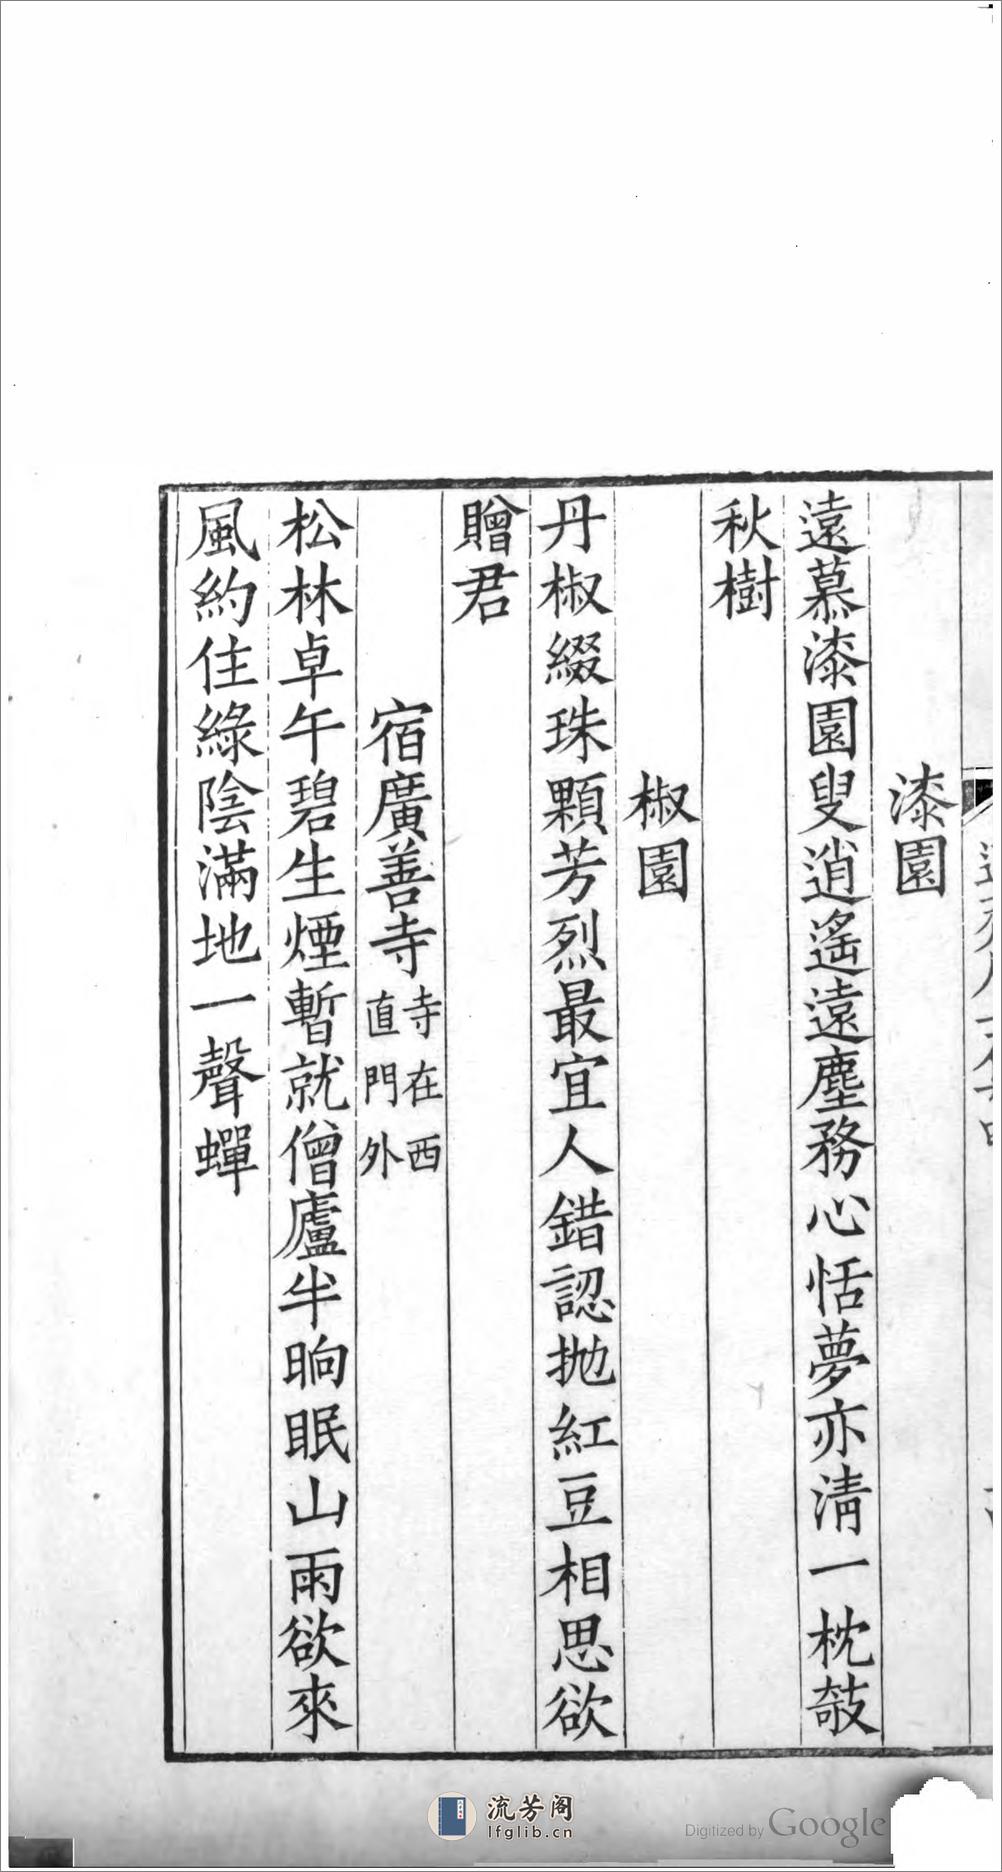 漆園
遠慕漆園叟逍遙遠塵務心恬夢亦清一枕攲
秋樹
椒園
丹椒綴珠顆芳烈最宜人錯認拋紅豆相思欲
贈君
宿廣善寺寺在西直門外
松林卓午碧生煙暫就僧廬半晌眠山雨欲來
風約住綠陰滿地一聲蟬
流芳阁
lfglib.cn
Digitized by Google